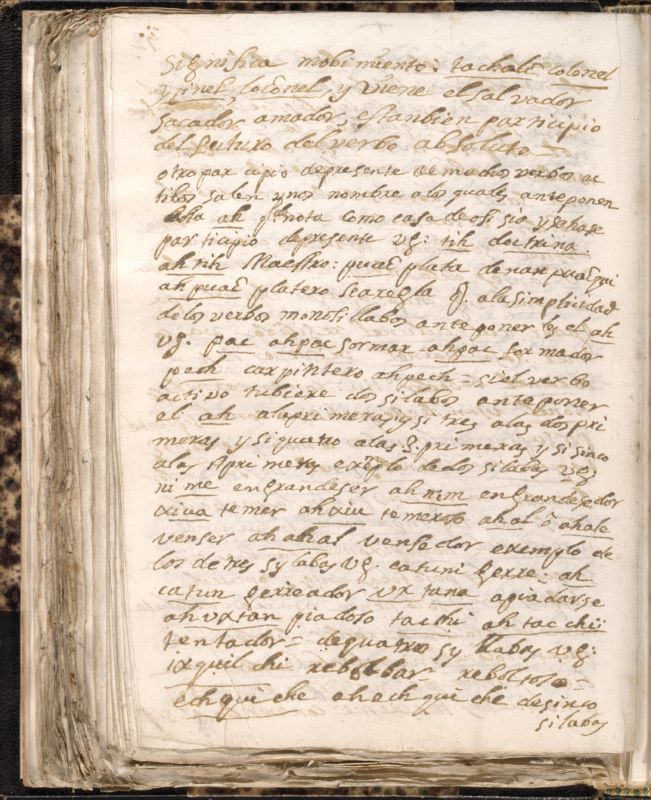 significa mobimiento: tachalē colonel
y inel, locōnel, y viene el salvador
sacador amador, estanbien participio
del futuro del verbo absoluto =
otro par cipio de presente de muchos verbos ac
tibos salen unos nombre a los quales anteponen
esta ah q̄ denota como casa de ofisio y se hase
participio de presente vg: tih doctrina.
ah tih Maestro: puac̄ plata
ah puac̄ platero sea regla g. a la simplicidad
de los verbos monosillabos anteponerles el ah
vg. pac ahpac formar ahpac formador
pech carpintero ahpech = si el verbo
activo tubiere dos silabas anteponer
el ah a la primeras, y si tres a las dos pri
meras y si quatro a las 3. primeras y si sinco
a las 4 primeras exēplo de dos silabas vg
ni me engrandeser ah nim engrandesedor
xiva temer ahxiu temeroso ahal ō ahale
venser ah ahal vensedor exemplo de
los de tres sylabas vg. catuni gerre. ah
catun gerreador vxtana apiadarse
ah vxtan piadoso tacchi ah tacchii
tentador = de quatro syllabas vg:
ixquil chi rebolbar reboltoso =
echquiche ahechquiche de sinco
silabas